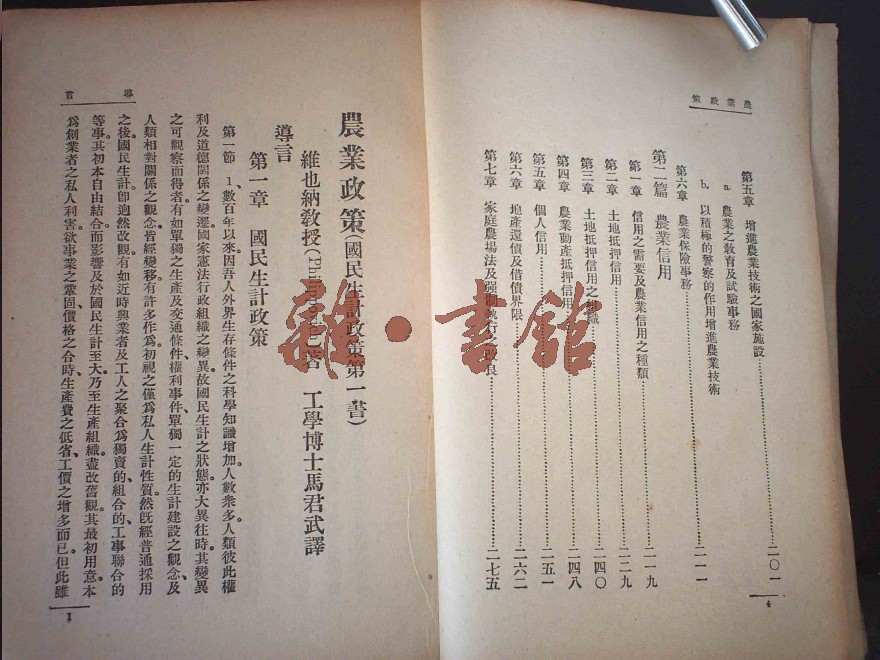 農業政策
第五章 增進農業技術之國家施設…二〇一
a. 農業之教育及試驗事務
b. 以積極的警察的作用增進農業技術…二一一
第六章 農業保險事務
第二篇 農業信用
第一章 信用之需要及農業信用之種類…二一九
第二章 土地抵押信用…二二九
第三章 土地抵押信用之組織…二四〇
第四章 農業動產抵押信用…二四八
第五章 個人信用…二五一
第六章 地產還債及借債界限…二六二
第七章 家庭農場法及強制執行之改良…二七五
4
雜·書館
導言
農業政策(國民生計政策第一書)
維也納教授(Philippovich)著 工學博士馬君武譯
導言
第一章 國民生計政策
第一節 1、數百年以來因吾人外界生存條件之科學知識增加、人數衆多、人類彼此權
利及道德關係之變遷國家憲法行政組織之變異故國民生計之狀態亦大異往時其變異
之可觀察而得者有如單獨之生產及交通條件權利事件單獨一定的生計建設之觀念及
人類相對關係之觀念皆經變移有許多作爲初視之僅爲私人生計性質然旣經普通採用
之後國民生計卽迥然改觀有如近時興業者及工人之聚合爲獨賣的、組合的、工事聯合的
等事其初本自由結合而影響及於國民生計至大乃至生產組織盡改舊觀其最初用意本
爲創業者之私人利害欲事業之鞏固價格之合時生產費之低省、工價之增多而已但此雖
1